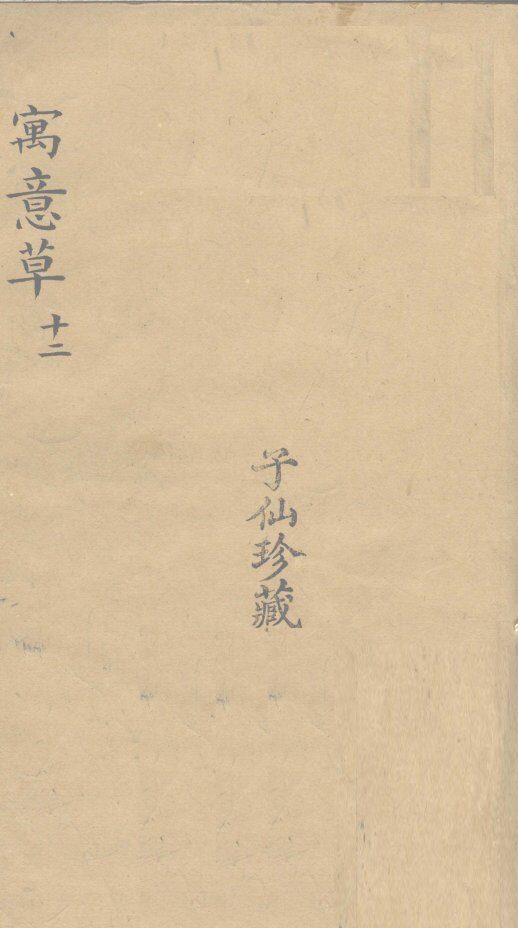 寓意草 十二
子仙珍藏